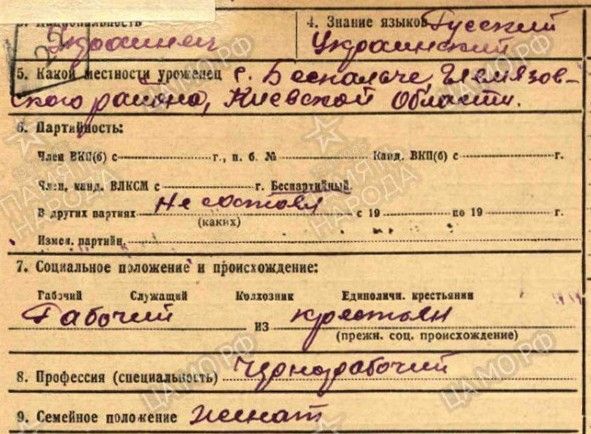 3. Национальность
Украинец
22
4. Знание языков Русский
Украинский
5. Какой местности уроженец с. Беспальче, Гельмязов-
ского района, Киевской области.
6. Партийность:
Член ВКП(б) с г., п. б. № Канд. ВКП(б) с г.
Член, канд. ВЛКСМ с г. Беспартийный.
В других партиях Не состоял с 19 по 19 г.
(каких)
Измен. партийн.
7. Социальное положение и происхождение:
Рабочий Служащий Колхозник Единоличн. крестьянин
Рабочий из крестьян
(прежн. соц. происхождение)
8. Профессия (специальность) Чернорабочий
9. Семейное положение Женат
ПАМЯТЬ НАРОДА
ЦАМО РФ